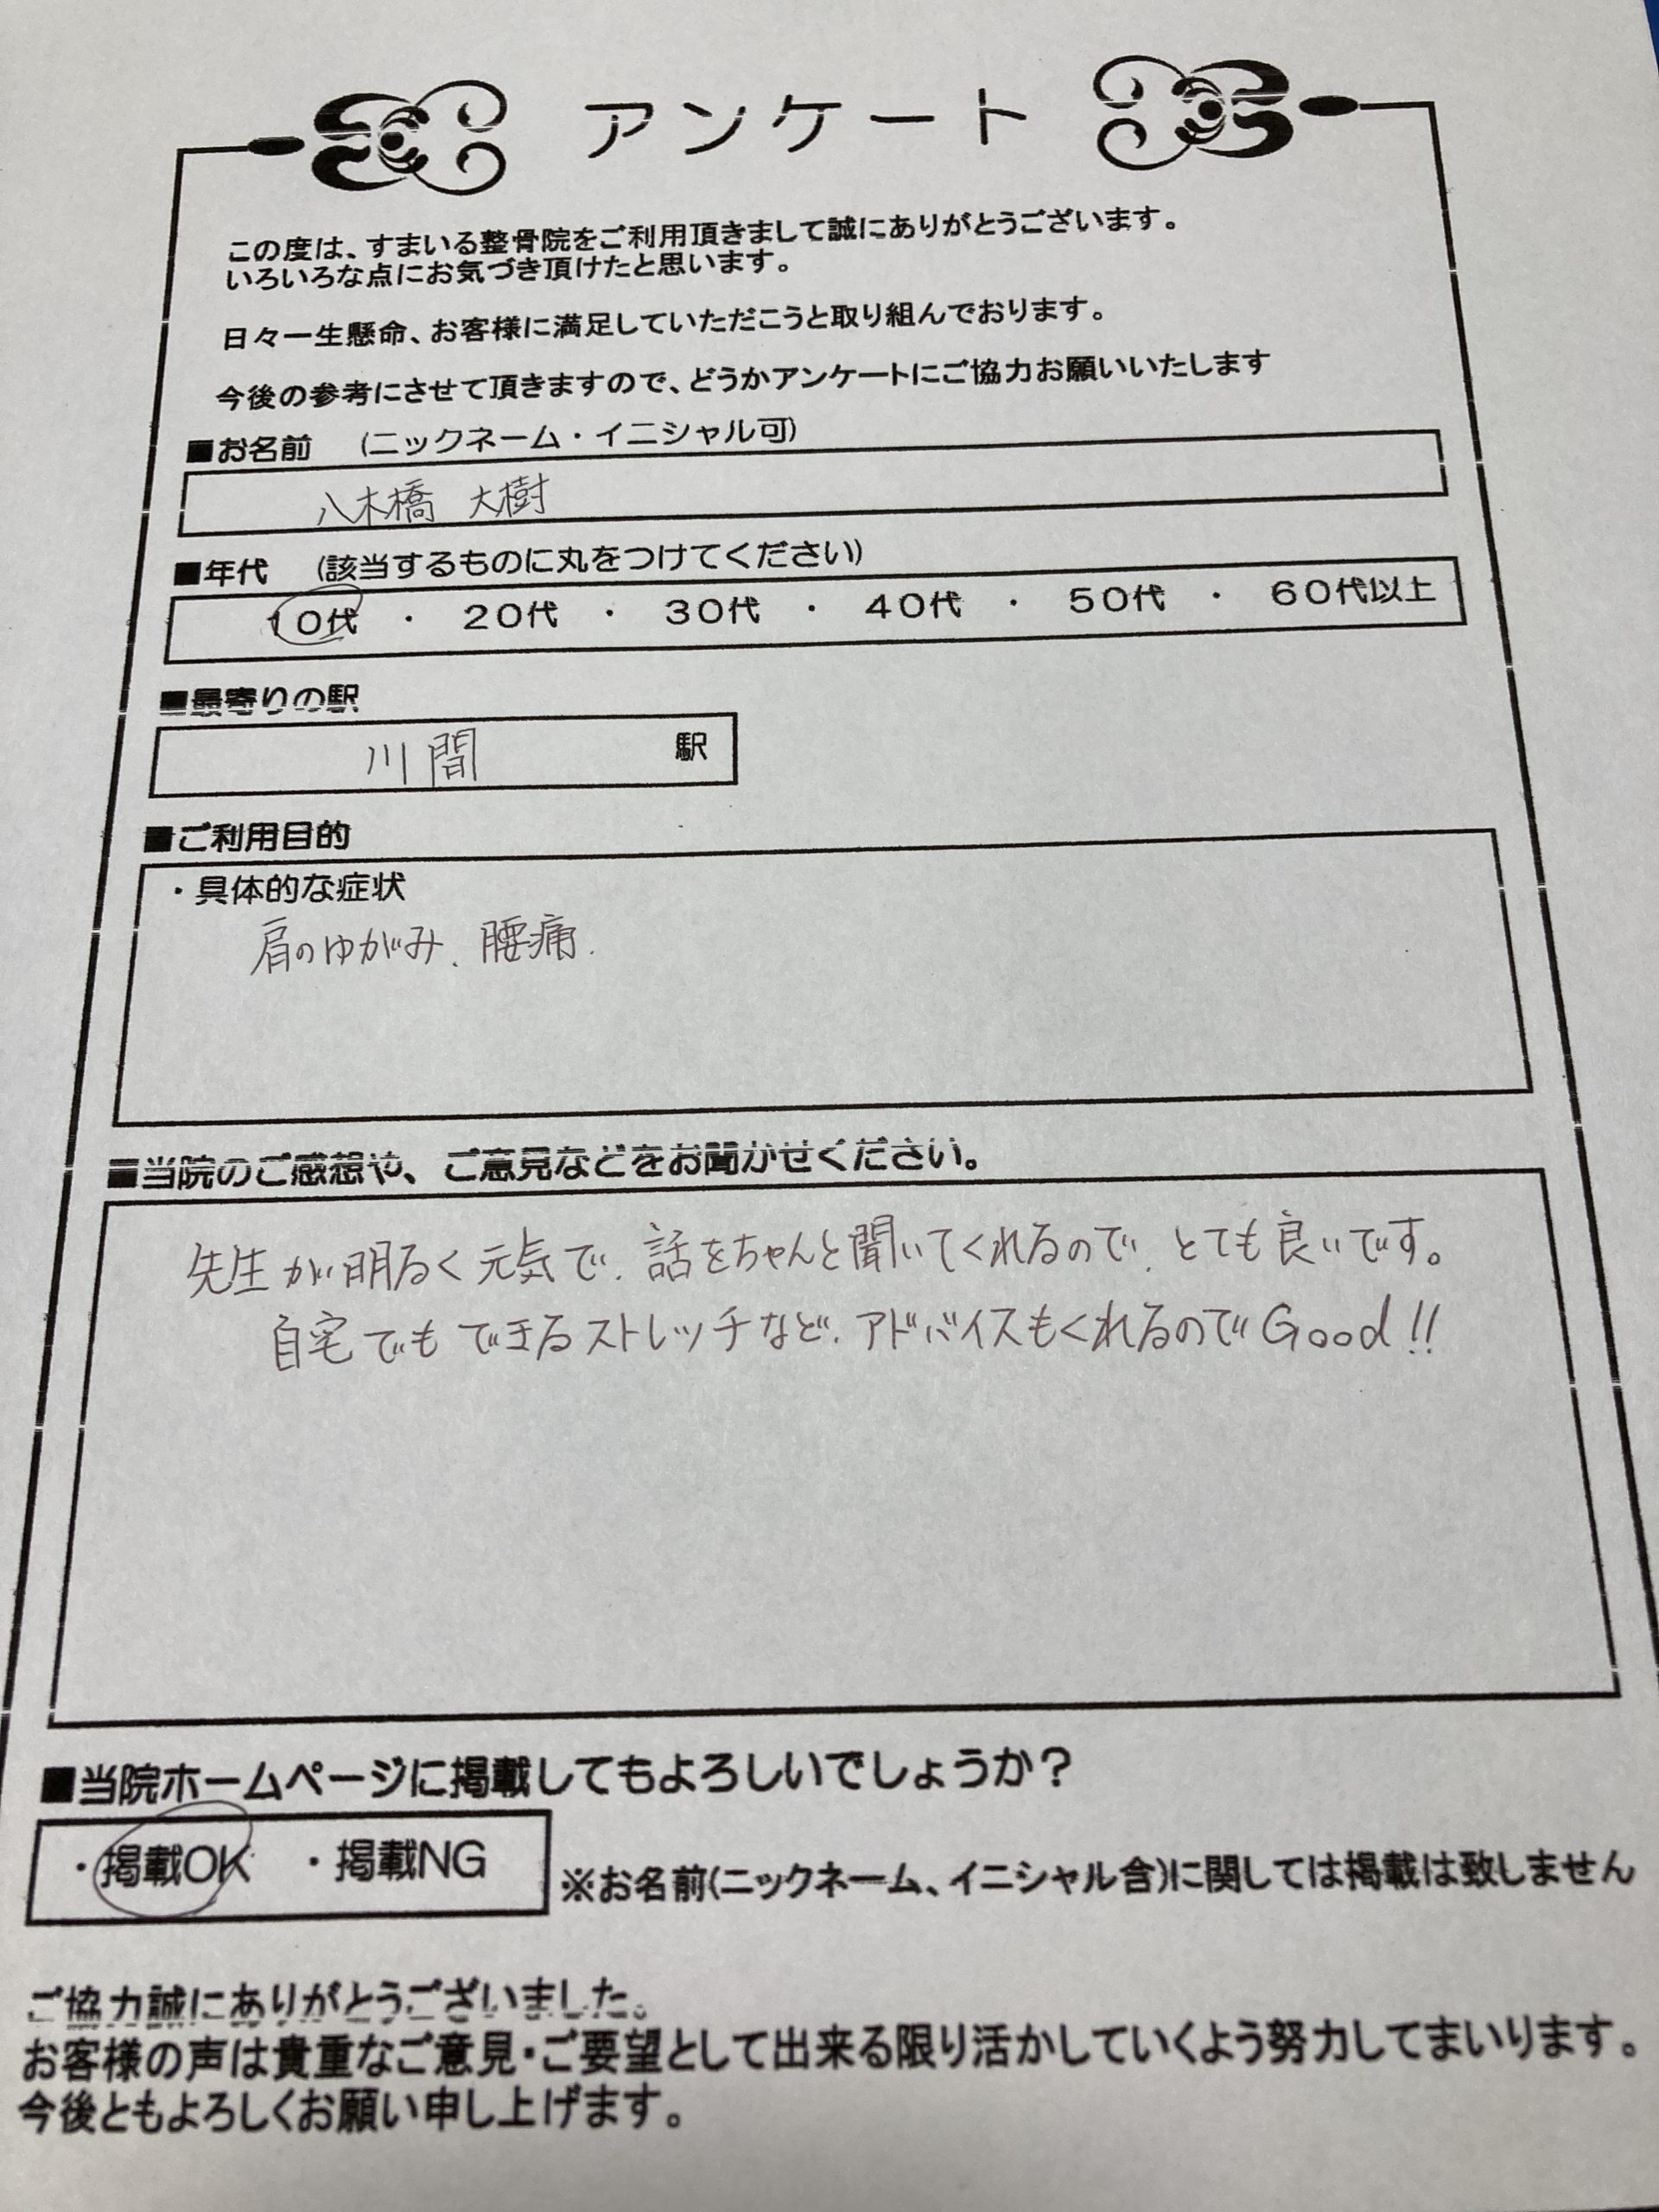 アンケート
この度は、すまいる整骨院をご利用頂きまして誠にありがとうございます。
いろいろな点にお気づき頂けたと思います。
日々一生懸命、お客様に満足していただこうと取り組んでおります。
今後の参考にさせて頂きますので、どうかアンケートにご協力お願いいたします
■お名前 (ニックネーム・イニシャル可)
八木橋 大樹
■年代 (該当するものに丸をつけてください)
10代 ・ 20代 ・ 30代 ・ 40代 ・ 50代 ・ 60代以上
■最寄りの駅
川間 駅
■ご利用目的
・具体的な症状
肩のゆがみ、腰痛.
■当院のご感想や、ご意見などをお聞かせください。
先生が明るく元気で、話をちゃんと聞いてくれるので、とても良いです。
自宅でもできるストレッチなど、アドバイスもくれるのでGood!!
■当院ホームページに掲載してもよろしいでしょうか？
・掲載OK ・掲載NG ※お名前(ニックネーム、イニシャル含)に関しては掲載は致しません
ご協力誠にありがとうございました。
お客様の声は貴重なご意見・ご要望として出来る限り活かしていくよう努力してまいります。
今後ともよろしくお願い申し上げます。